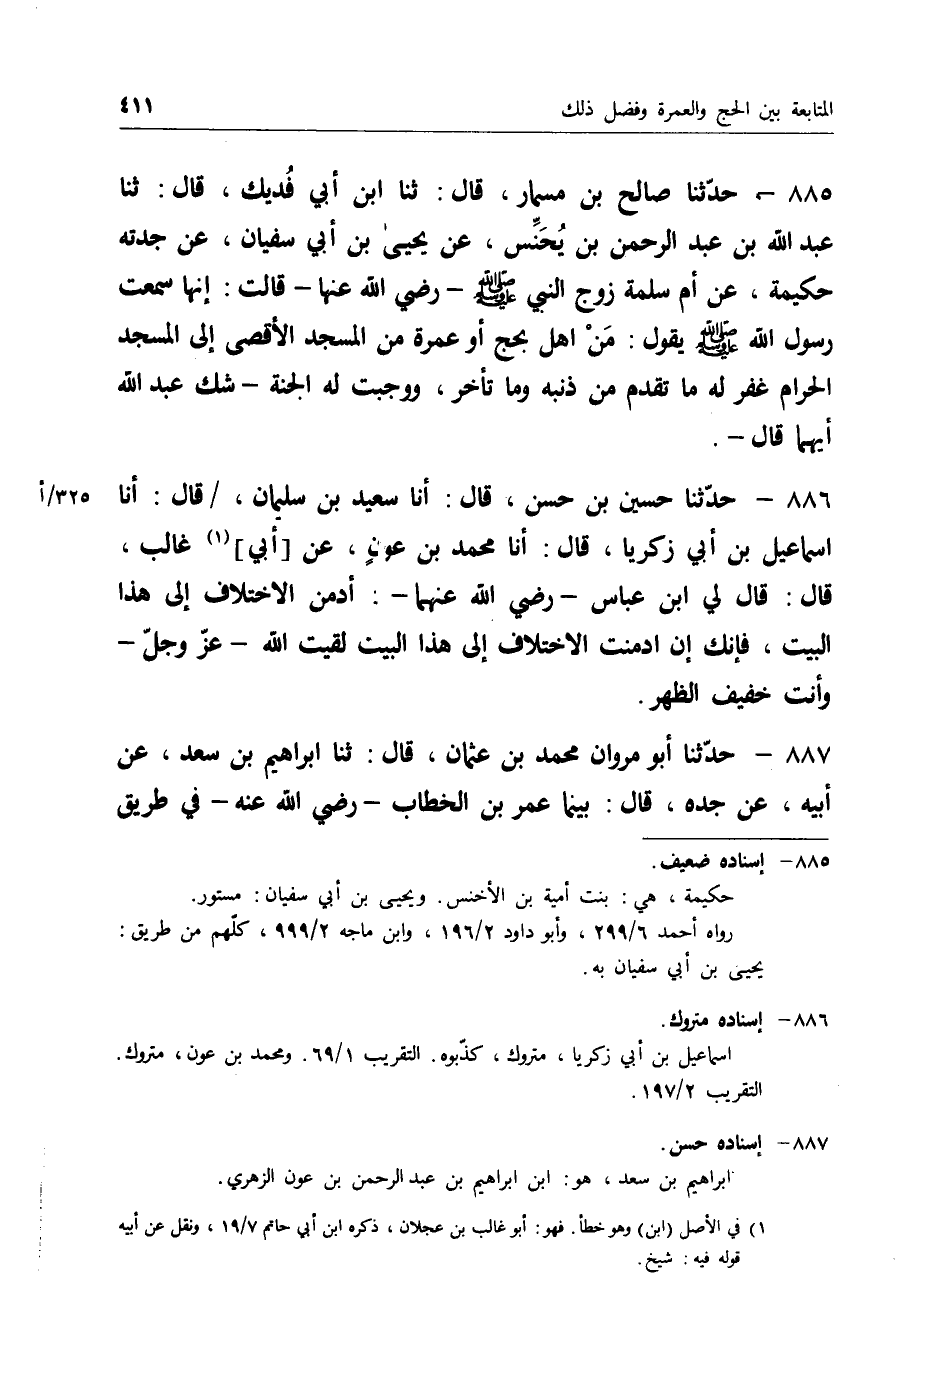 المتابعة بين الحج والعمرة وفضل ذلك ٤١١
٨٨٥ – حدّثنا صالح بن مسمار ، قال : ثنا ابن أبي فُديك ، قال : ثنا
عبد الله بن عبد الرحمن بن يُحَنِّس ، عن يحيىٰ بن أبي سفيان ، عن جدته
حكيمة ، عن أم سلمة زوج النبي ﷺ – رضي الله عنها – قالت : إنها سمعت
رسول الله ﷺ يقول : مَنْ اهل بحج أو عمرة من المسجد الأقصى إلى المسجد
الحرام غفر له ما تقدم من ذنبه وما تأخر ، ووجبت له الجنة – شك عبد الله
أيهما قال – .
٨٨٦ – حدّثنا حسين بن حسن ، قال : أنا سعيد بن سليمان ، / قال : أنا ٣٢٥/أ
اسماعيل بن أبي زكريا ، قال : أنا محمد بن عونٍ ، عن [أبي](١) غالب ،
قال : قال لي ابن عباس – رضي الله عنهما – : أدمن الاختلاف إلى هذا
البيت ، فإنك إن ادمنت الاختلاف إلى هذا البيت لقيت الله – عزّ وجلّ –
وأنت خفيف الظهر .
٨٨٧ – حدّثنا أبو مروان محمد بن عثمان ، قال : ثنا ابراهيم بن سعد ، عن
أبيه ، عن جده ، قال : بينما عمر بن الخطاب – رضي الله عنه – في طريق
٨٨٥– إسناده ضعيف.
حكيمة ، هي : بنت أمية بن الأخنس. ويحيى بن أبي سفيان : مستور.
رواه أحمد ٢٩٩/٦ ، وأبو داود ١٩٦/٢ ، وابن ماجه ٩٩٩/٢ ، كلّهم من طريق :
يحيى بن أبي سفيان به.
٨٨٦– إسناده متروك.
اسماعيل بن أبي زكريا ، متروك ، كذّبوه. التقريب ٦٩/١. ومحمد بن عون ، متروك.
التقريب ١٩٧/٢.
٨٨٧– إسناده حسن.
ابراهيم بن سعد ، هو : ابن ابراهيم بن عبد الرحمن بن عون الزهري.
١) في الأصل (ابن) وهو خطأ. فهو : أبو غالب بن عجلان ، ذكره ابن أبي حاتم ١٩/٧ ، ونقل عن أبيه
قوله فيه : شيخ.